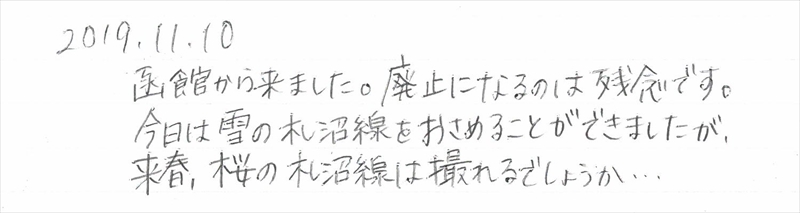 2019.11.10
函館から来ました。廃止になるのは残念です。
今日は雪の札沼線をおさめることができましたが、
来春、桜の札沼線は撮れるでしょうか…